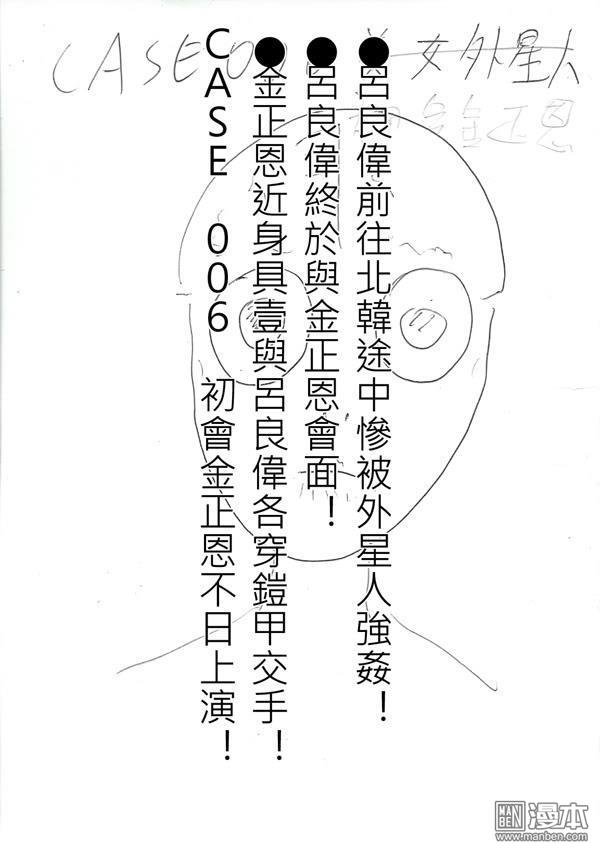 ●呂良偉前往北韓途中慘被外星人強姦！
●呂良偉終於與金正恩會面！
●金正恩近身具壹與呂良偉各穿鎧甲交手！
CASE 006 初會金正恩不日上演！
CASE 00
女外星人
金正恩
MAN BEN 漫本
www.manben.com